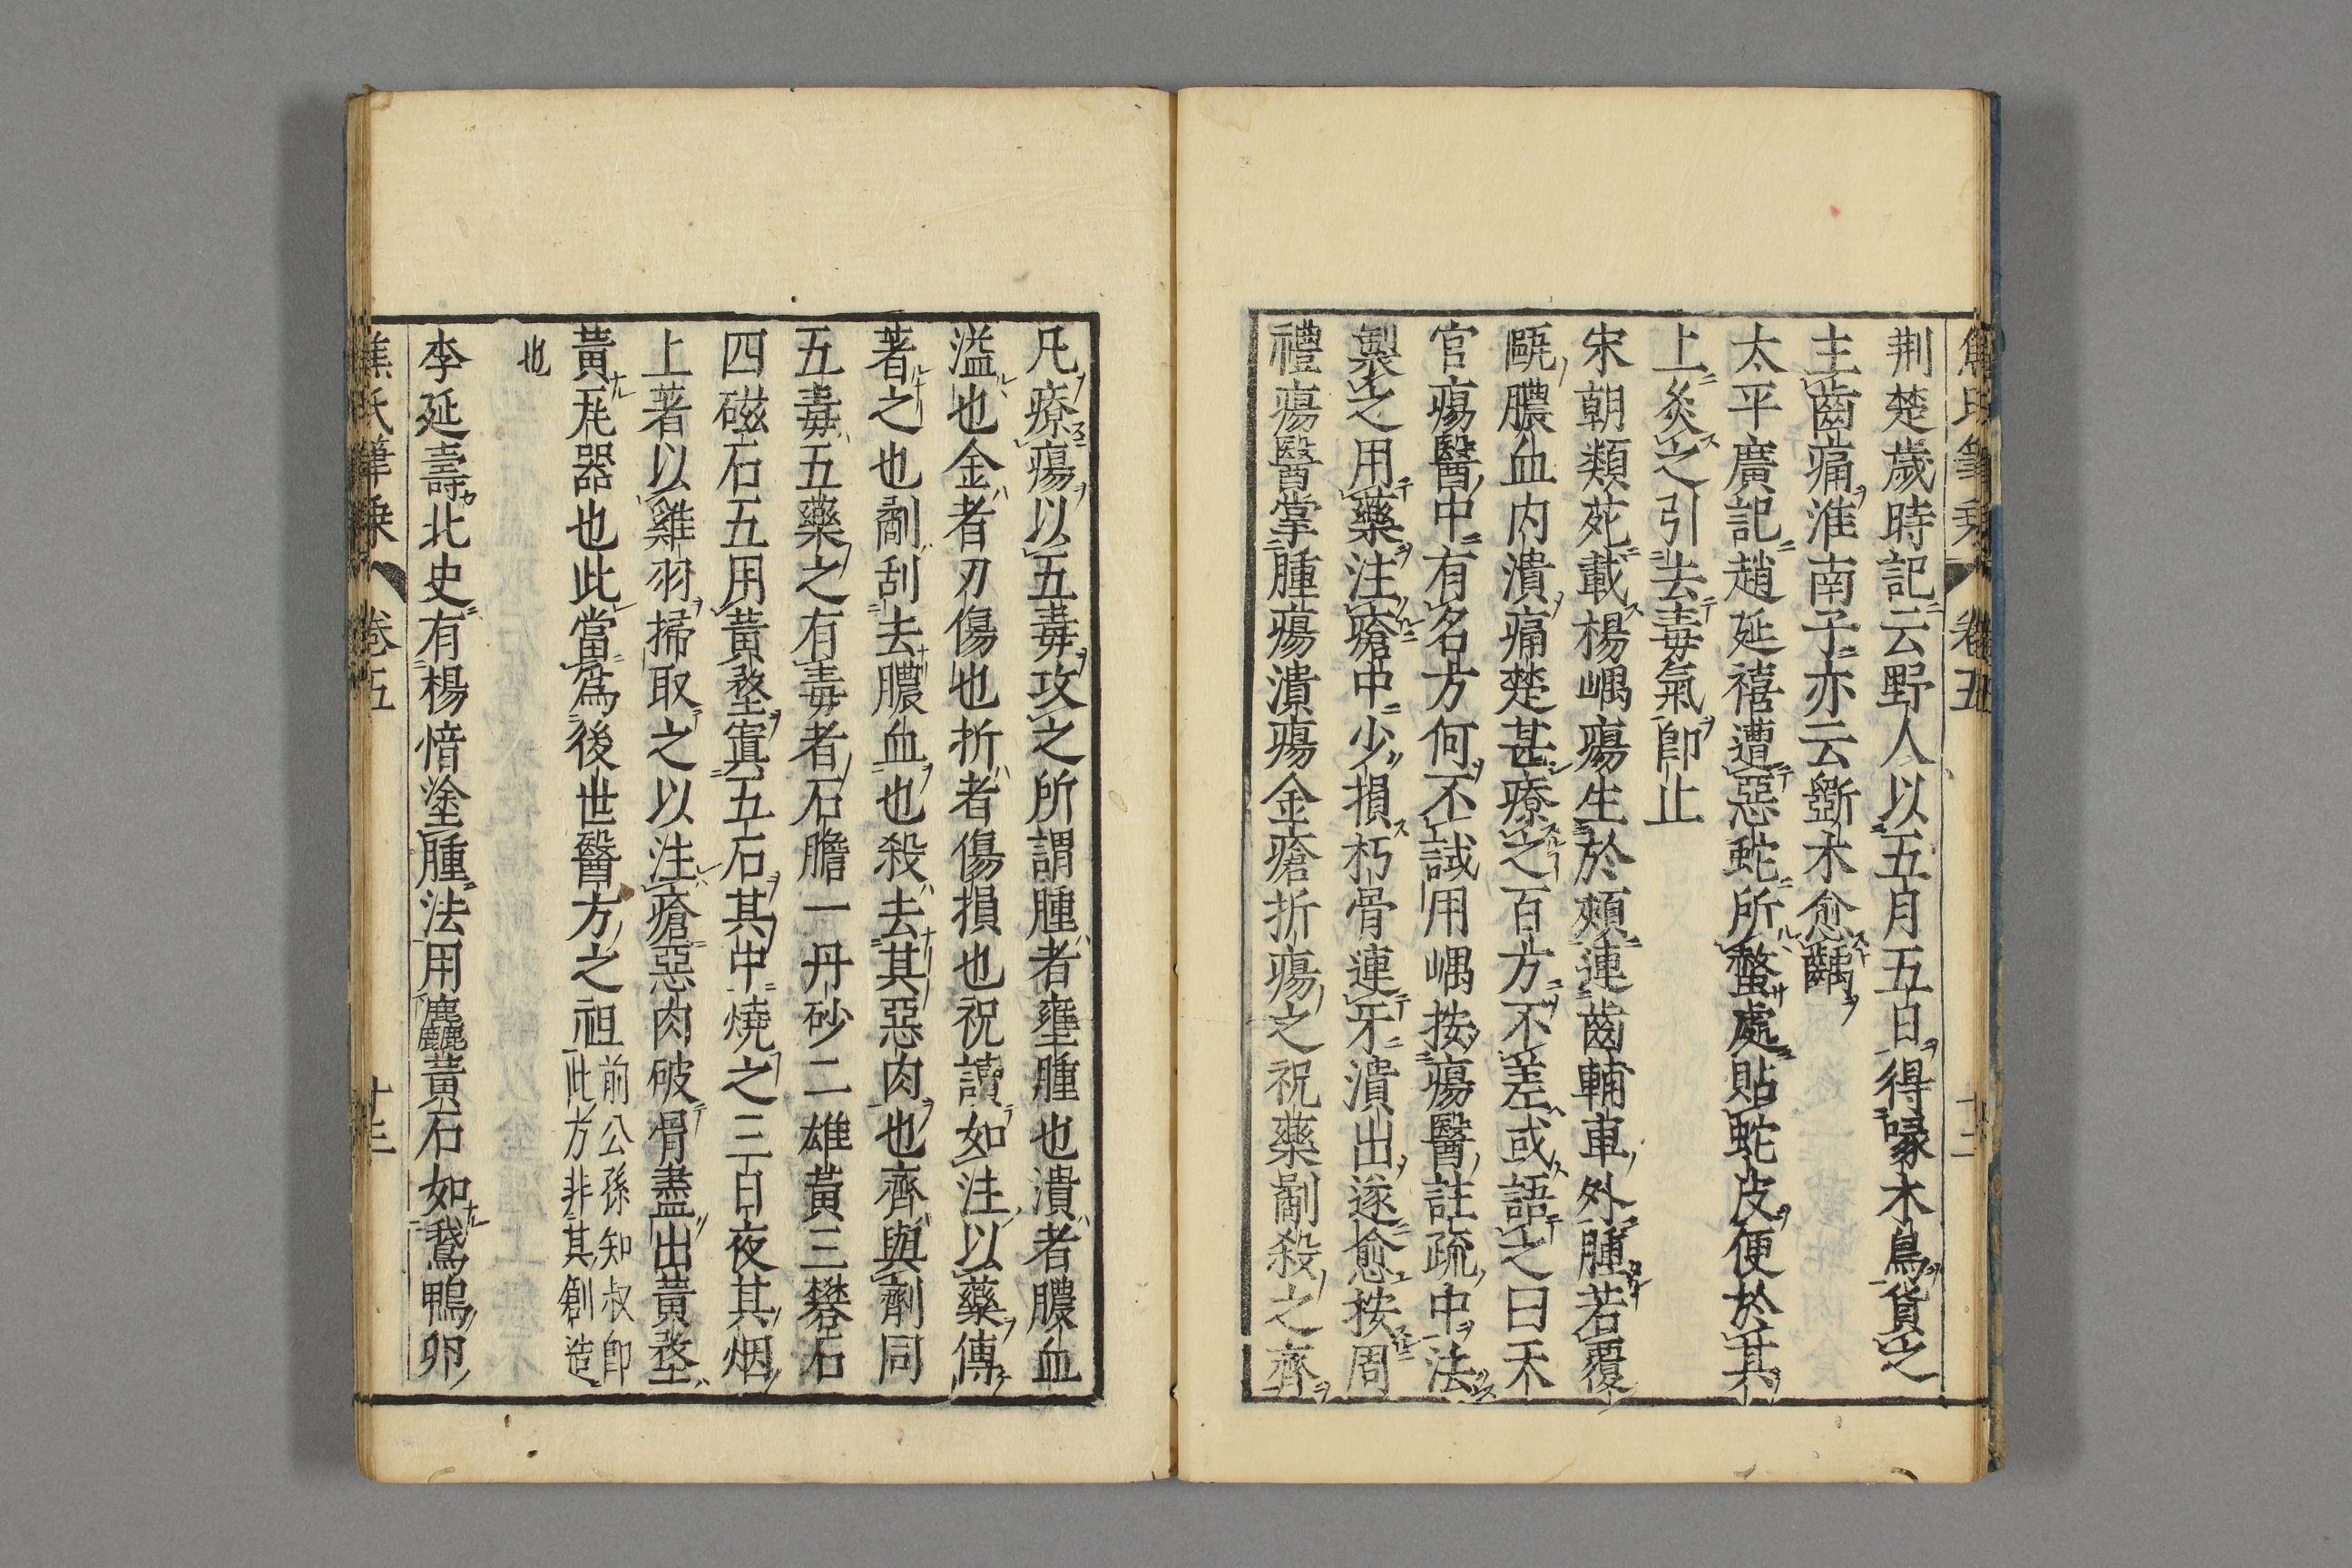 焦氏筆乗 卷五 十二
荆楚歲時記云野人以五月五日得啄木鳥貨之
主齒痛淮南子亦云斲木愈齲
太平廣記趙延禧遭惡蛇所螫處貼蛇皮便於其
上炙之引去毒氣卽止
宋朝類苑載楊嵎瘍生於頰連齒輔車外腫若覆
甌膿血内潰痛楚甚療之百方不差或語之曰天
官瘍醫中有名方何不試用嵎按瘍醫註疏中法
製之用藥注瘡中少損朽骨連牙潰出遂愈按周
禮瘍醫掌腫瘍潰瘍金瘡折瘍之祝藥劀殺之齊
凡療瘍以五毒攻之所謂腫者壅腫也潰者膿血
溢也金者刃傷也折者傷損也祝讀如注以藥傅
著之也劀刮去膿血也殺去其惡肉也齊與劑同
五毒五藥之有毒者石膽一丹砂二雄黃三礬石
四磁石五用黃堥寘五石其中燒之三日夜其烟
上著以雞羽掃取之以注瘡惡肉破骨盡出黃堥
黃瓦器也此當爲後世醫方之祖前公孫知叔卽
此方非其創造
也
李延壽北史有楊愔塗腫法用麤黃石如鵞鴨卵
焦氏筆乗 卷五 十三